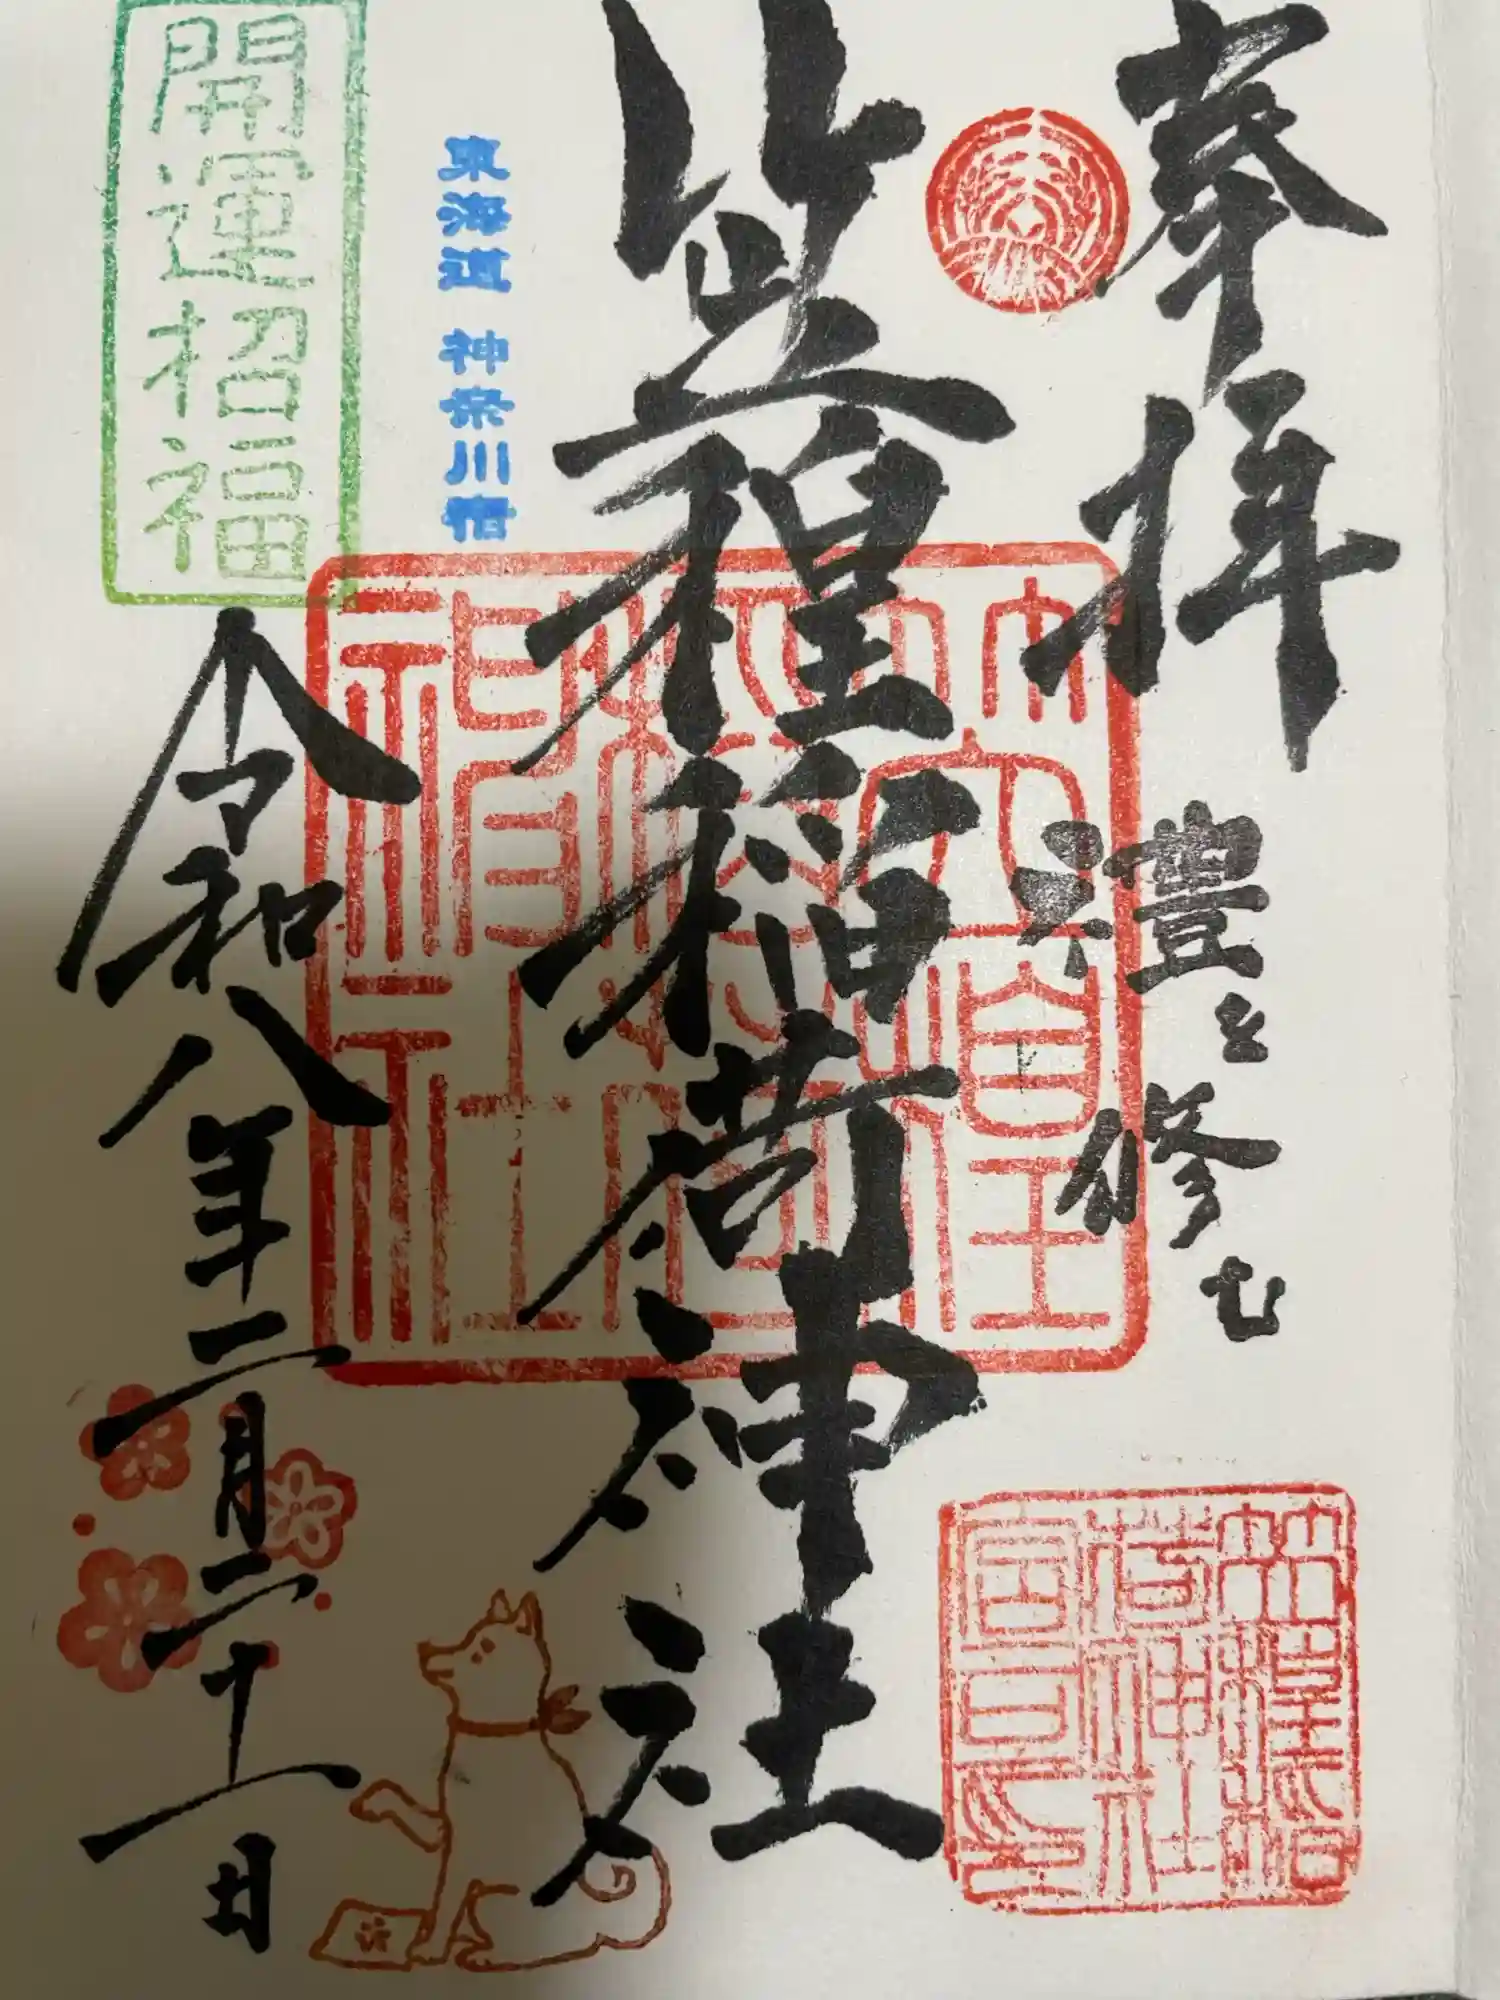 奉拝
禮を修む
笠䅣稲荷神社
笠䅣
稲荷
神社
笠䅣稲
荷神社
宮司之印
東海道 神奈川宿
開運招福
令和八年二月二十一日